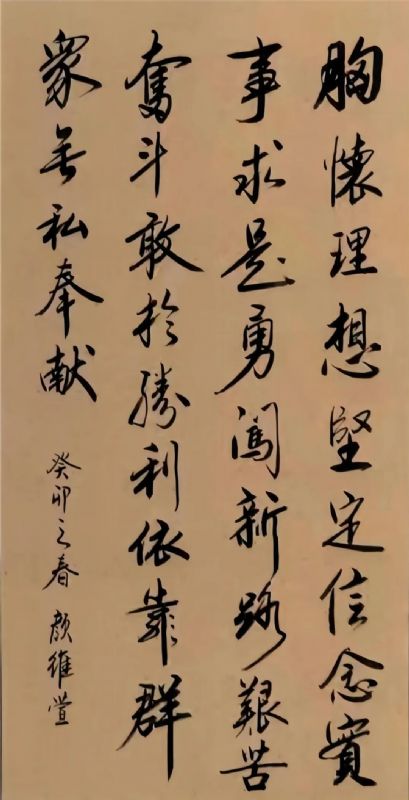 胸懷理想堅定信念實
事求是勇闖新路艱苦
奮斗敢於勝利依靠群
衆無私奉献
癸卯之春 顏維萱